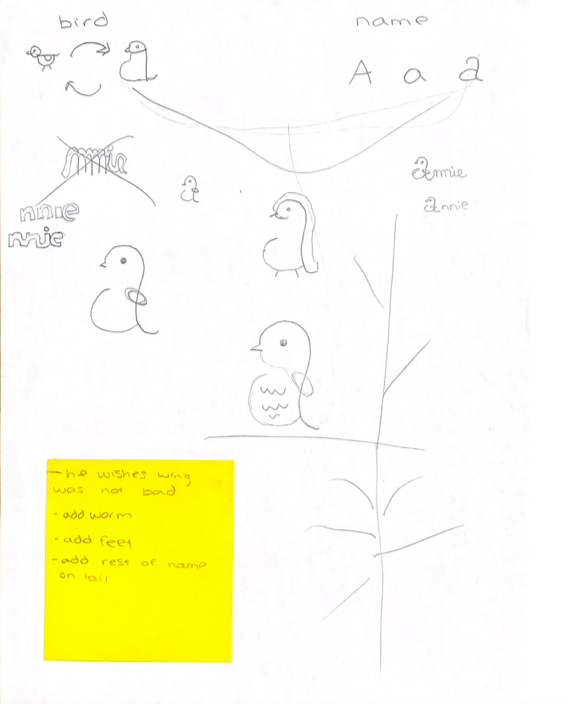 bird
name
A a a
nnie
annie
nnie
a
annie
nnie
- he wishes wing
was not bad
- add worm
- add feet
- add rest of name
on tail